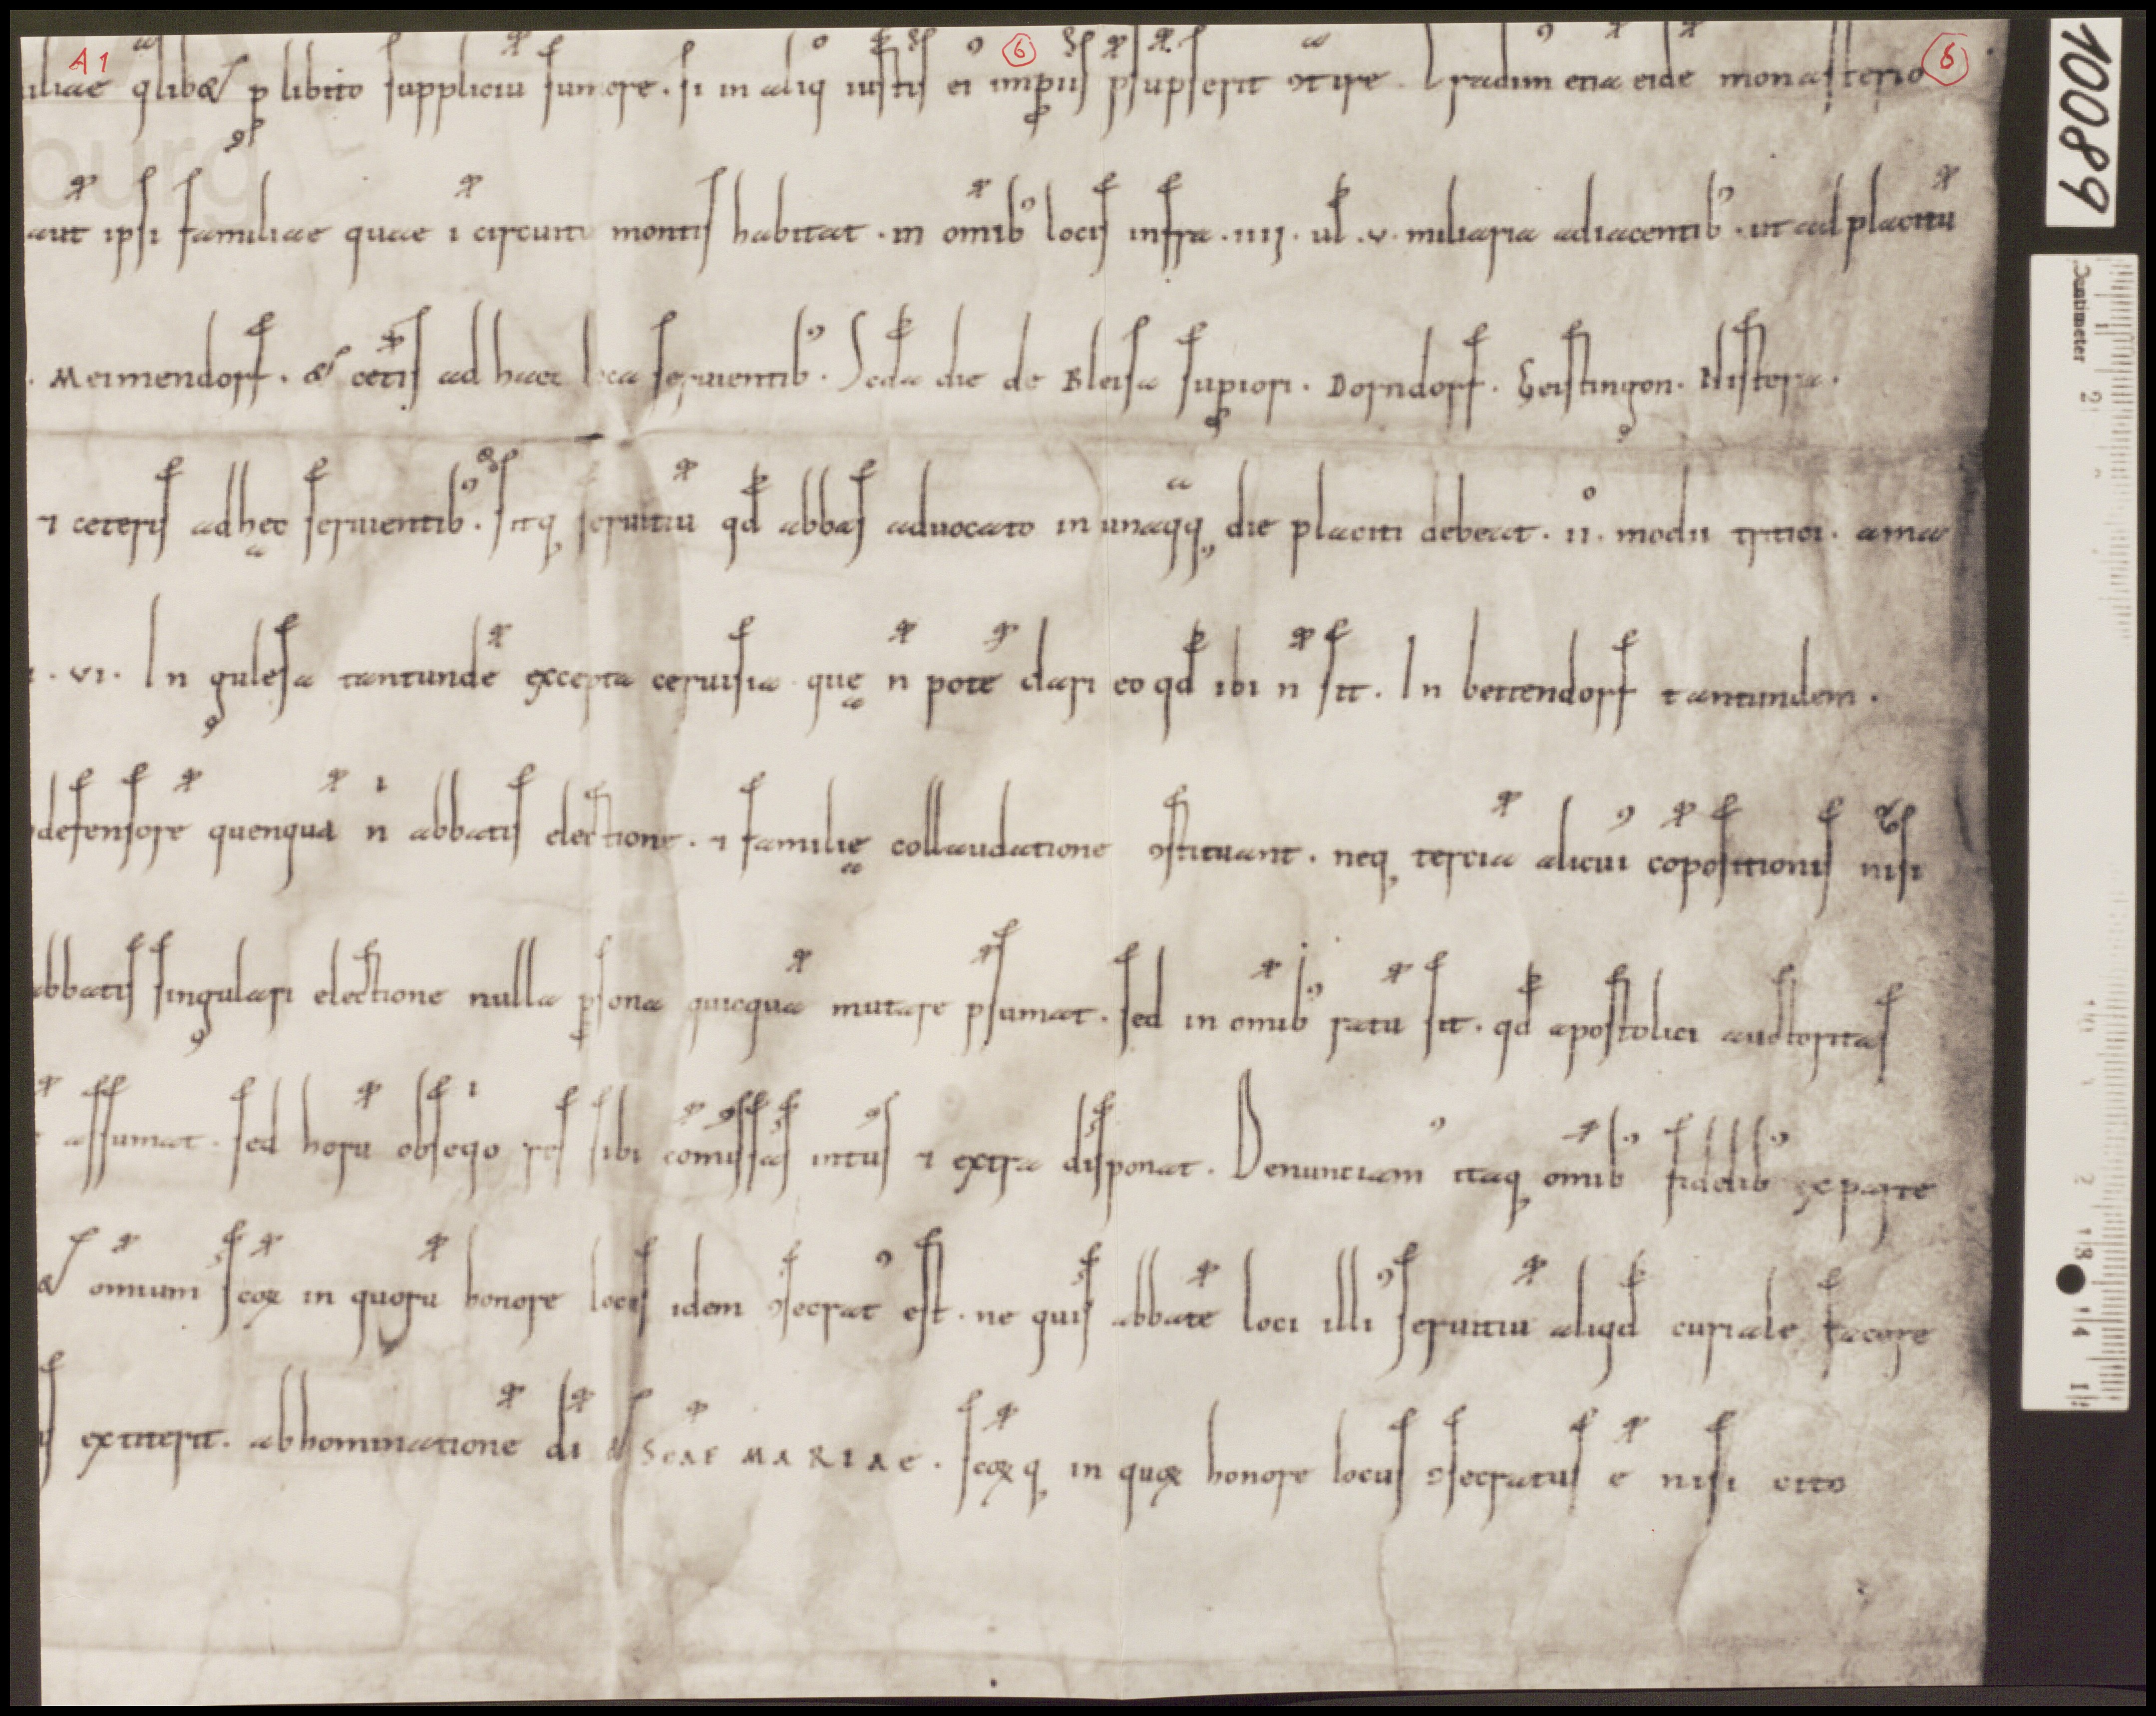 A 1 6 6
iliae q̱libet ꝑ libito suppliciū sumere. si in aliq̊ iustis ei impiis p̄supserit ꝯtire. Tradim᾽ etiā eidē monasterio
aut ipsi familiae quae ī circuitu montis habitat. in om̄ib᾽ locis infra. iiii. ul. v. miliaria adiacentib᾽. ut ad placitū
. Meimendorf. & cet̄is ad haec loca seruientib᾽. Scđa die de Bleisa supiori. Dorndorf. Geistingon. Nistera.
⁊ ceteris ad hęc seruientib᾽. Sitq, seruitiū qđ abbas aduocato in unaq̄q, die placiti debeat. ii. modii tritici. ama
. vi. In gulesa tantundē excepta ceruisia quę n̄ potē dari eo qđ ibi n̄ sit. In bettendorf tantundem.
defensorē quenquā n̄ abbatis electione. ⁊ familię collaudatione ꝯstituant. neq, tercia alicui᾽ cōpositionis nisi
abbatis singulari electione nulla ꝑsona quicquā mutare p̄sumat. sed in om̄ib᾽ ratū sit. qđ apostolici auctoritas
assumat. sed horū obseqio res sibi cōmissas intus ⁊ extra disponat. Denunciam᾽ itaq, om̄ib᾽ fidelib᾽ ex parte
& omnium sc̄oꝝ in quorū honore locus idem ꝯsecrat᾽ est. ne quis abbatē loci illi᾽ seruitiū aliqđ curiale facere
s extiterit. abhominationē dī & SCAE MARIAE. sc̄oꝝq, in quoꝝ honore locus ꝯsecratus ē nisi cito
10089
Centimeter
1
2
13
14